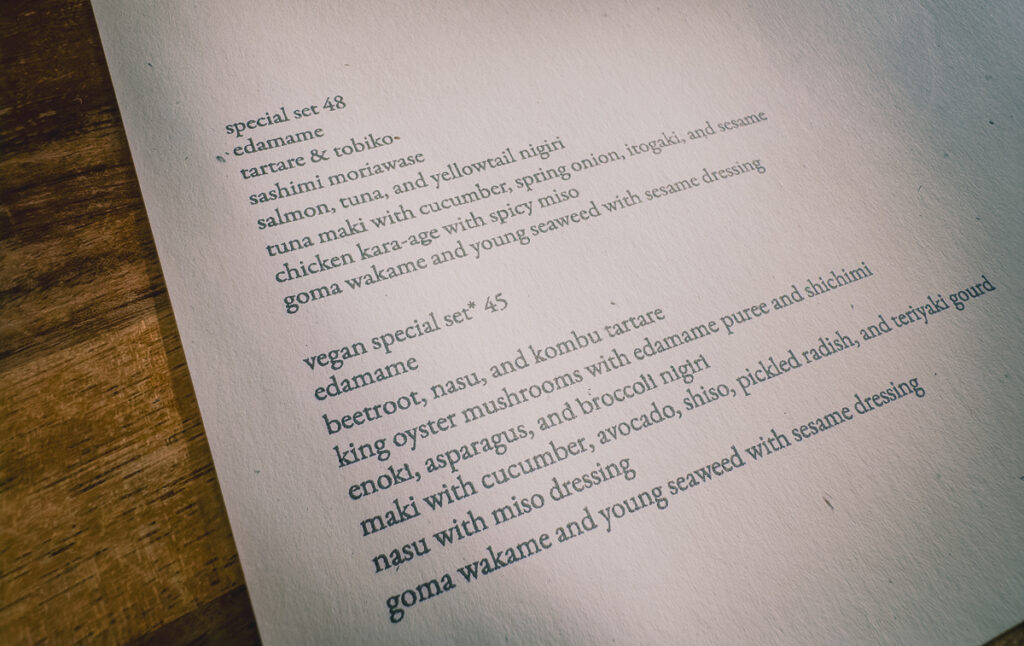 special set 48
edamame
tartare & tobiko
sashimi moriawase
salmon, tuna, and yellowtail nigiri
tuna maki with cucumber, spring onion, itogaki, and sesame
chicken kara-age with spicy miso
goma wakame and young seaweed with sesame dressing
vegan special set* 45
edamame
beetroot, nasu, and kombu tartare
king oyster mushrooms with edamame puree and shichimi
enoki, asparagus, and broccoli nigiri
maki with cucumber, avocado, shiso, pickled radish, and teriyaki gourd
nasu with miso dressing
goma wakame and young seaweed with sesame dressing